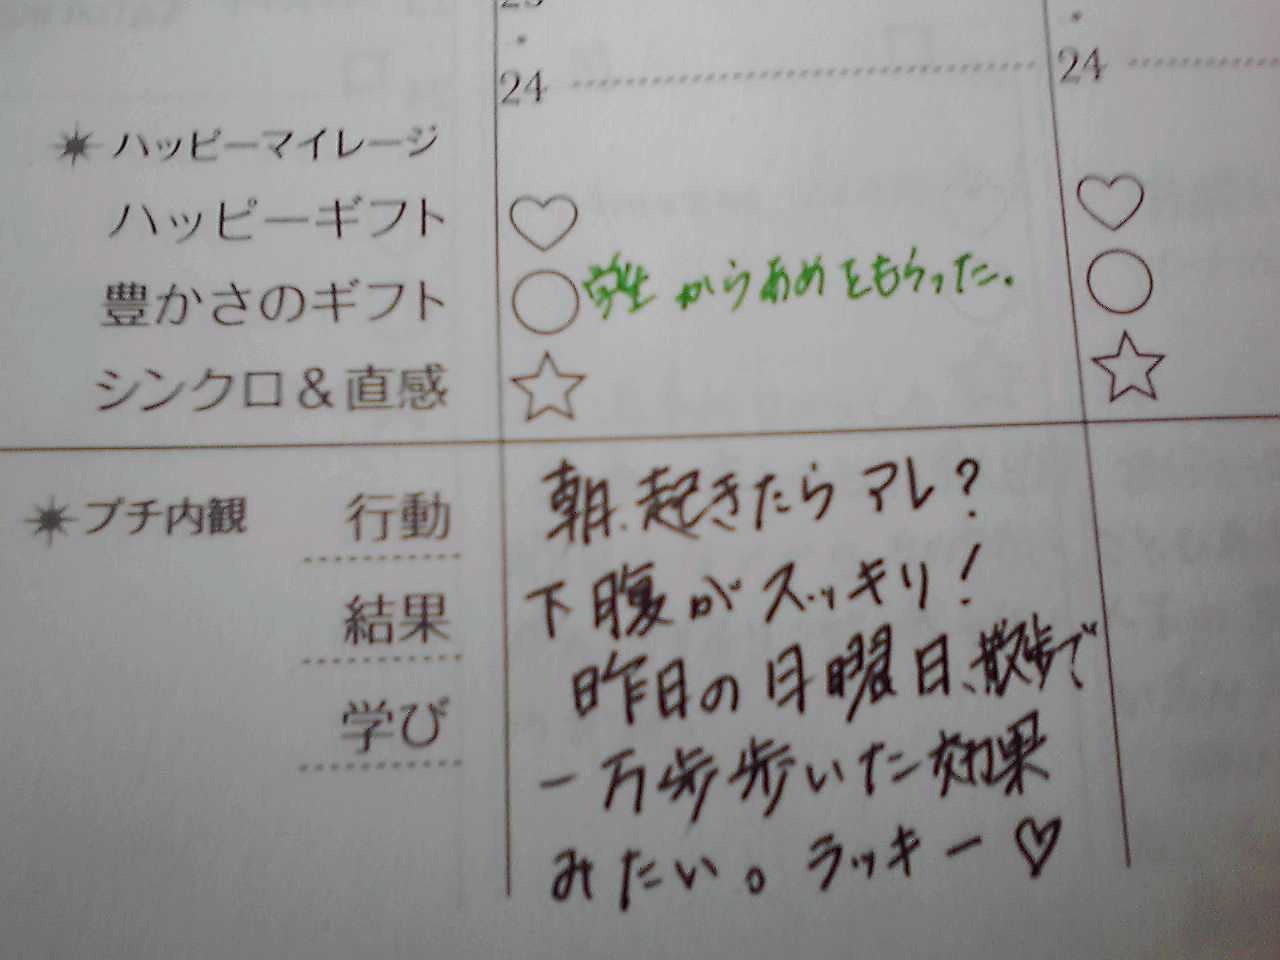 24
24
ハッピーマイレージ
ハッピーギフト
豊かさのギフト
学生からあめをもらった。
シンクロ&直感
プチ内観
行動
結果
学び
朝、起きたらアレ?
下腹がスッキリ!
昨日の日曜日、散歩で
一万歩歩いた効果
みたい。ラッキー♡